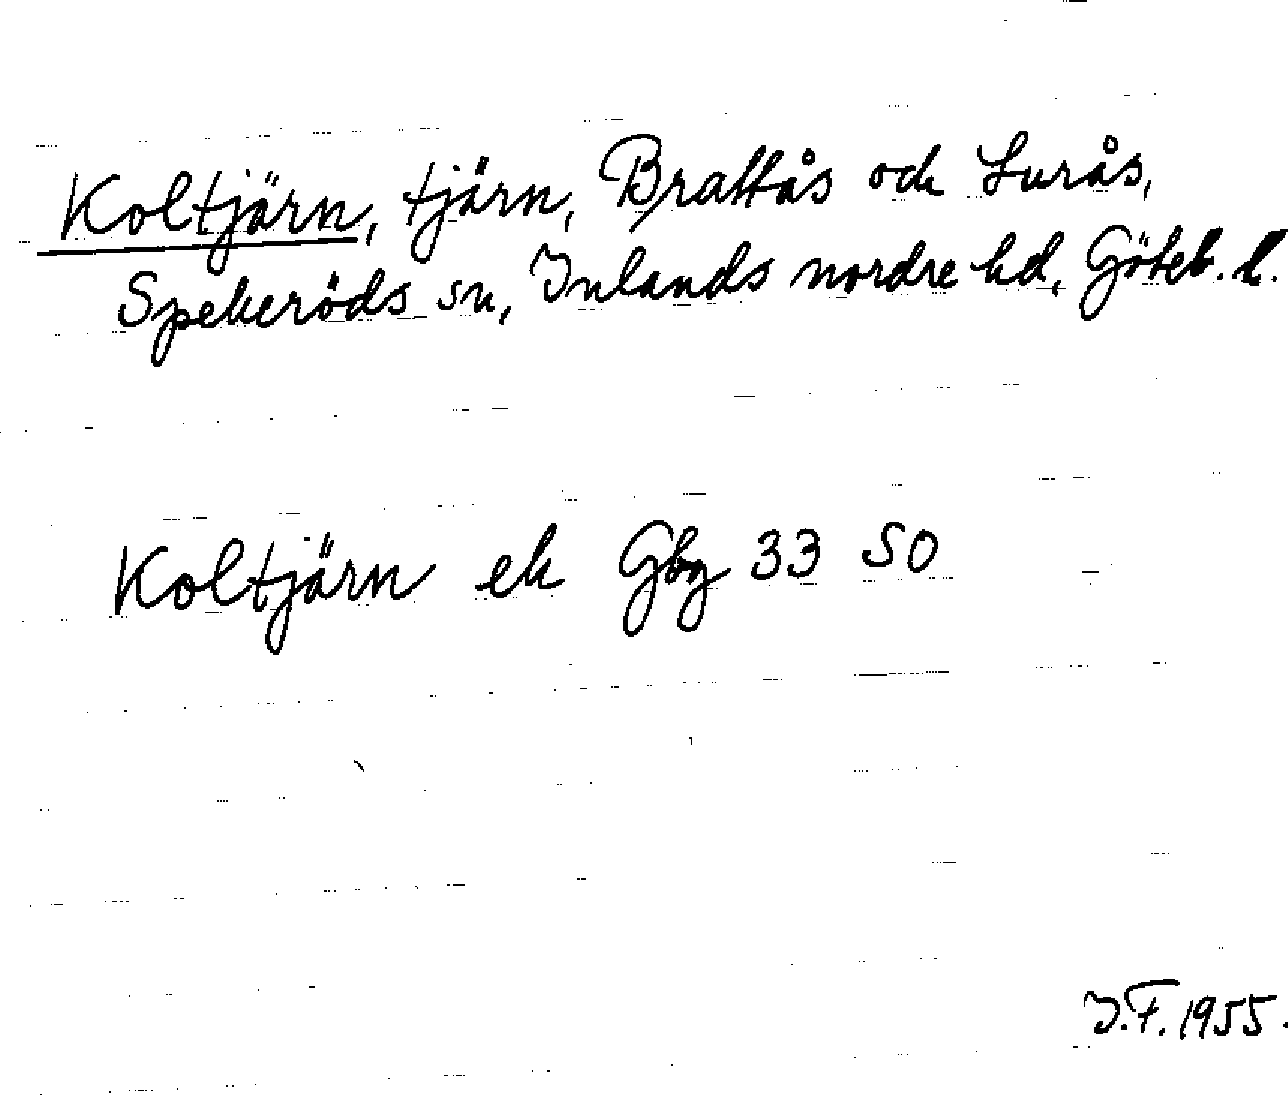 Koltjärn, tjärn, Brattås och Lurås,
Spekeröds sn, Inlands nordre hd, Göteb. l.
Koltjärn ek Gbg 33 SO
I.F. 1955.